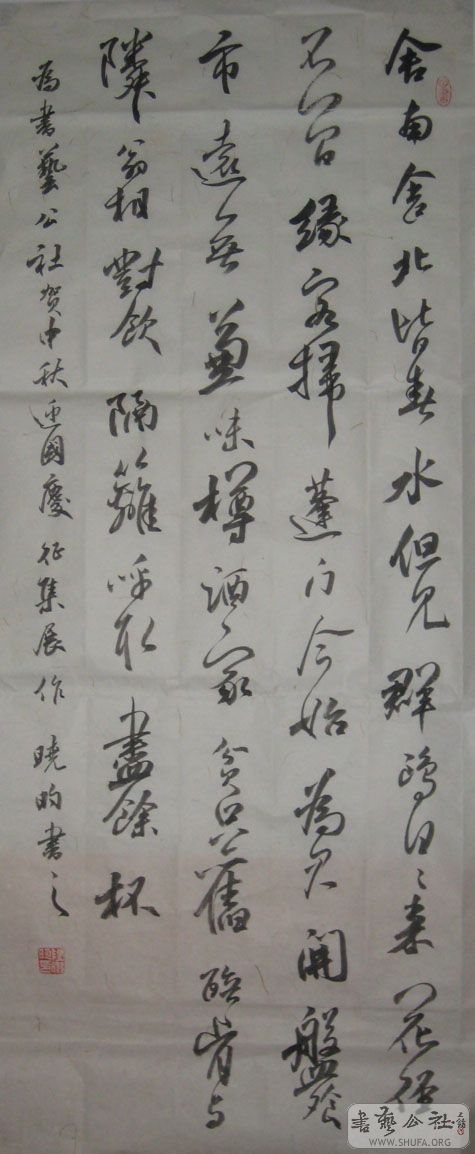 舍南舍北皆春水但見群鷗日々來花徑
不曾緣客掃蓬門今始為君開盤飧
市遠無兼味樽酒家貧只舊醅肯与
隣翁相對飲隔籬呼取盡餘杯
為書藝公社贺中秋迎國慶征集展作 曉昀書之
書藝公社
WWW.SHUFA.ORG